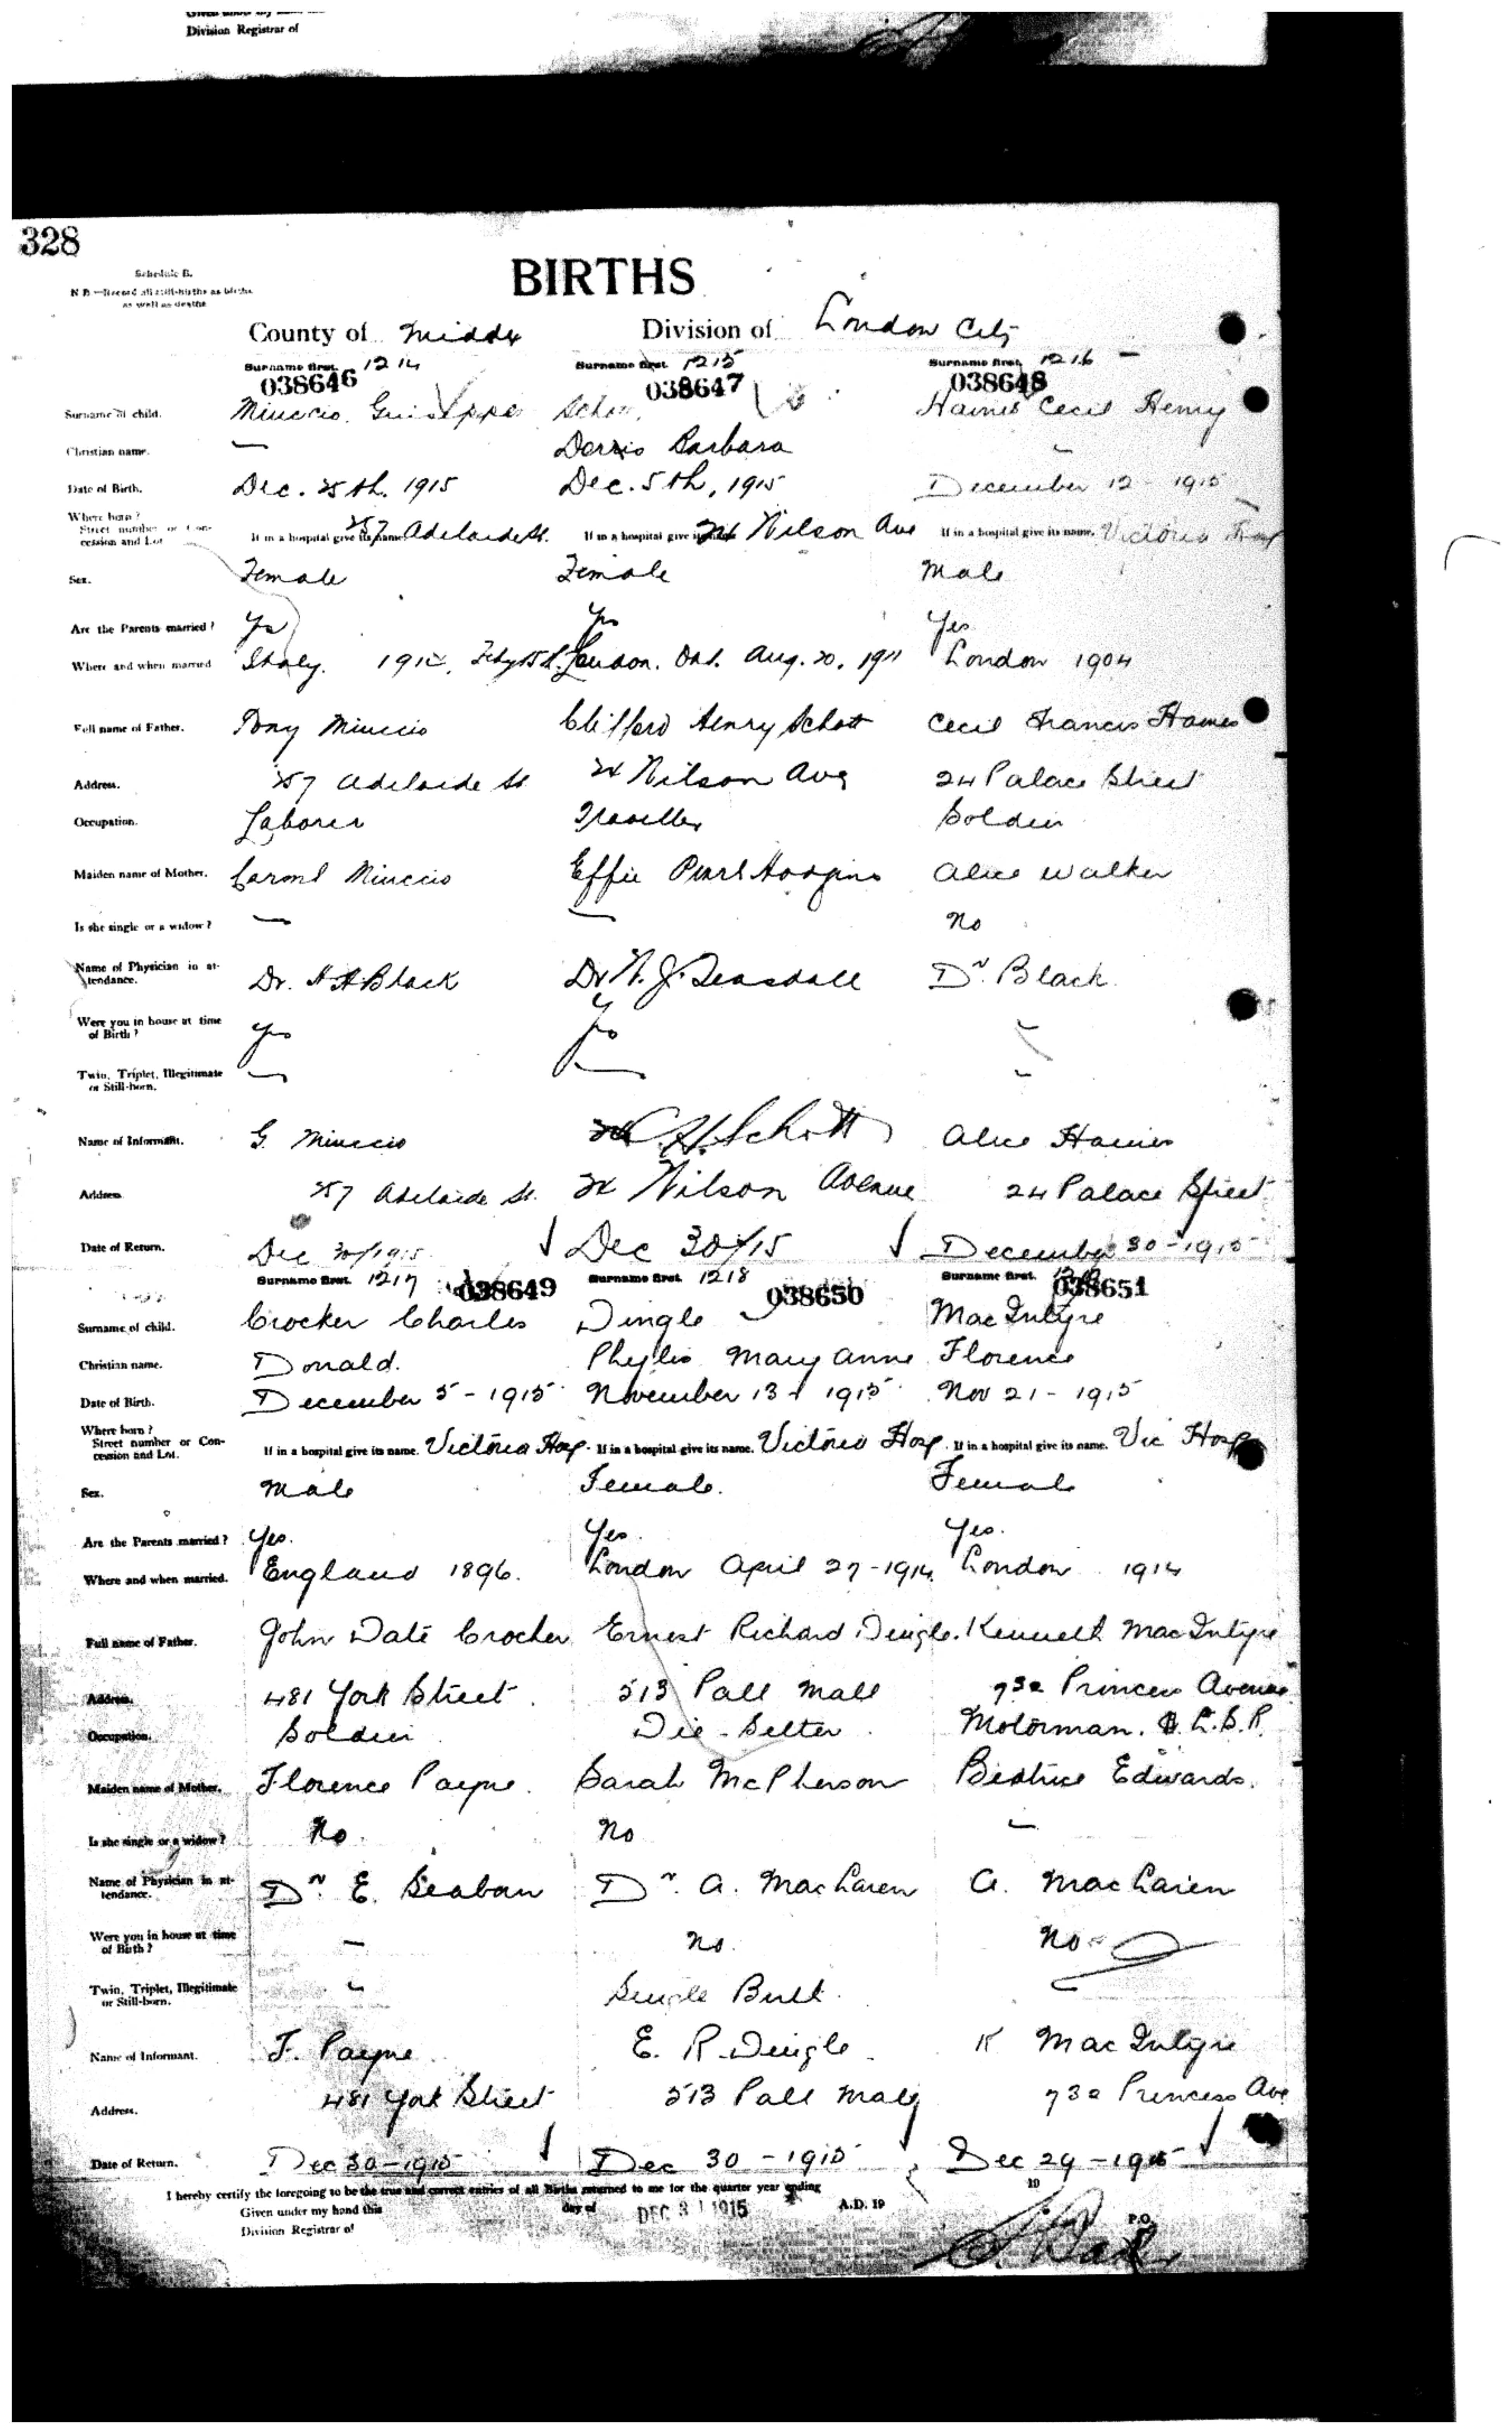 Division Registrar of
328
Schedule B.
N.B.—Record all still-births as births
as well as deaths
BIRTHS
County of Middx Division of London City
Surname first. 1214 Surname first. 1215 Surname first. 1216
038646 038647 038648
Surname of child. Minccio. Guiseppe Schott Haines Cecil Henry
Christian name. — Barbara —
Date of Birth. Dec. 25th. 1915 Dec. 5th, 1915 December 12 - 1915
Where born?
Street number or Con-
cession and Lot If in a hospital give its name. 257 Adelaide St. If in a hospital give its name. Wilson Ave If in a hospital give its name. Victoria Hosp
Sex. Female Female Male
Are the Parents married? Yes Yes Yes
Where and when married Italy. London. Ont. Aug. 20. 1911 London 1904
Full name of Father. Tony Minccio Clifford Henry Schott Cecil Francis Haines
Address. 257 Adelaide St Wilson Ave 24 Palace Street
Occupation. Laborer Traveller Soldier
Maiden name of Mother. Minccio Effie Pearl Hodgins Alice Walker
Is she single or a widow? — — no
Name of Physician in at-
tendance. Dr. H A Black Dr W. J. Teasdall Dr. Black
Were you in house at time
of Birth? Yes Yes —
Twin, Triplet, Illegitimate
or Still-born. — — —
Name of Informant. G. Minccio C. H. Schott Alice Haines
Address 257 Adelaide St. Wilson Avenue 24 Palace Street
Date of Return. Dec 30/1915 Dec 30/15 December 30 - 1915
Surname first. 1217 038649 Surname first. 1218 038650 Surname first. 038651
Surname of child. Crocker Charles Dingle MacIntyre
Christian name. Donald. Phylis Mary Anne Florence
Date of Birth. December 5 - 1915 November 13 - 1915 Nov 21 - 1915
Where born?
Street number or Con-
cession and Lot. If in a hospital give its name. Victoria Hosp. If in a hospital give its name. Victoria Hosp. If in a hospital give its name. Vic Hosp
Sex. Male Female. Female
Are the Parents married? Yes. Yes. Yes.
Where and when married. England 1896. London April 27 - 1914. London 1914
Full name of Father. John Date Crocker Ernest Richard Dingle. Kenneth MacIntyre
Address. 481 York Street. 513 Pall Mall 732 Princess Avenue
Occupation. Soldier Die-Setter Motorman. L.S.R.
Maiden name of Mother. Florence Payne. Sarah McPherson Beatrice Edwards.
Is she single or a widow? No. No —
Name of Physician in at-
tendance. Dr. E. Seaborn Dr. A. MacLaren A. MacLaren
Were you in house at time
of Birth? — no. no
Twin, Triplet, Illegitimate
or Still-born. — Single Birth. —
Name of Informant. F. Payne E. R. Dingle K MacIntyre
Address. 481 York Street 513 Pall Mall 732 Princess Ave
Date of Return. Dec 30 - 1915 Dec 30 - 1915 Dec 29 - 1915
I hereby certify the foregoing to be the true and correct entries of all Births returned to me for the quarter year ending 19
Given under my hand this day of DEC 31 1915 A.D. 19
Division Registrar of P.O.